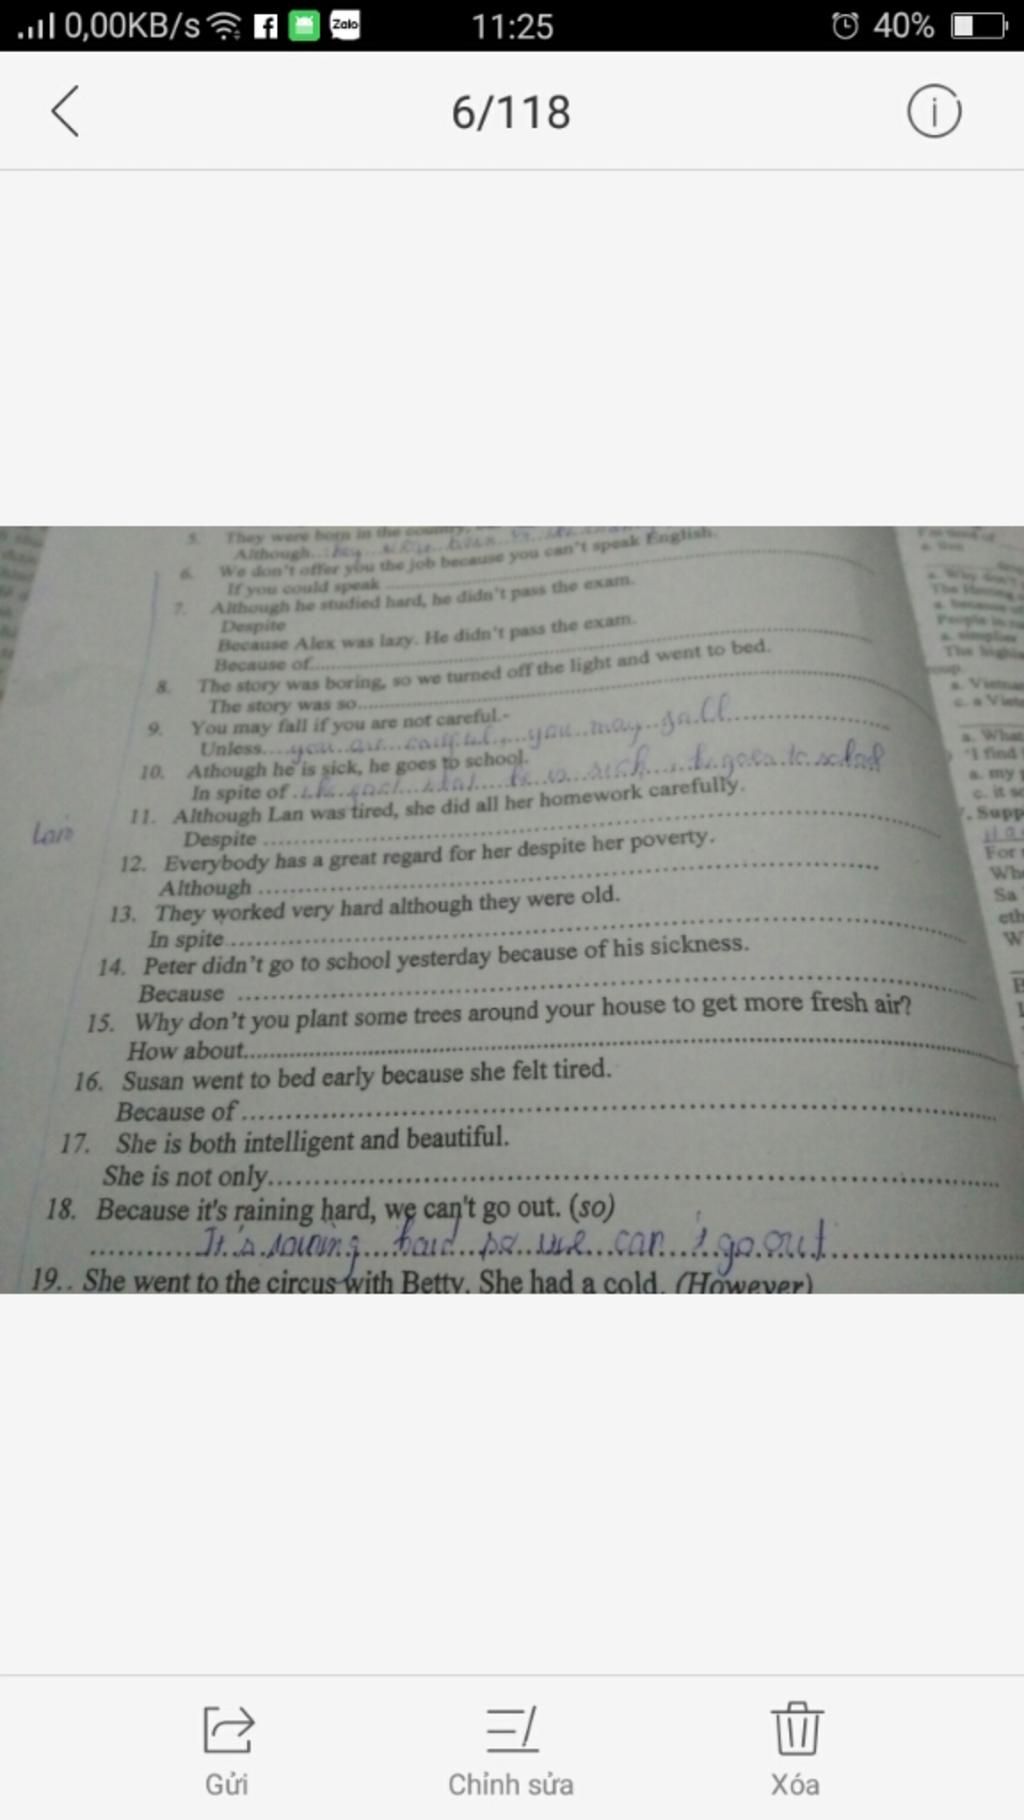 0,00KB/s
Zalo
11:25
40%
6/118
5. They were born in the country,
Although they were born in the
6. We don't offer you the job because you can't speak English.
If you could speak
7. Although he studied hard, he didn't pass the exam.
Despite
Because Alex was lazy. He didn't pass the exam.
Because of
8. The story was boring, so we turned off the light and went to bed.
The story was so
9. You may fall if you are not careful.-
Unless you are careful, you may fall
10. Athough he is sick, he goes to school.
In spite of the fact that he is sick, he goes to school
11. Although Lan was tired, she did all her homework carefully.
Despite
12. Everybody has a great regard for her despite her poverty.
Although
13. They worked very hard although they were old.
In spite
14. Peter didn't go to school yesterday because of his sickness.
Because
15. Why don't you plant some trees around your house to get more fresh air?
How about
16. Susan went to bed early because she felt tired.
Because of
17. She is both intelligent and beautiful.
She is not only
18. Because it's raining hard, we can't go out. (so)
It's raining hard so we can't go out
19.. She went to the circus with Betty. She had a cold. (However)
a. What
"I find
a. my
c. it so
Supp
For
Wh
Sa
eth
W
Gửi
Chỉnh sửa
Xóa